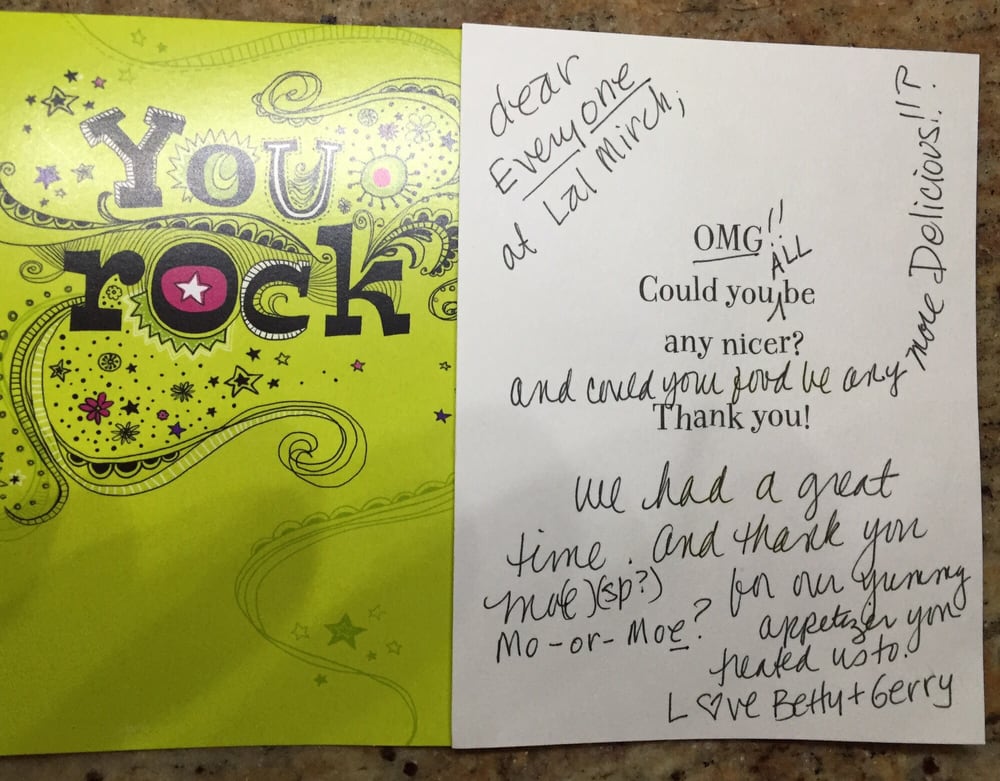 You
rock
dear
Everyone
at Lal Mirch,
OMG!!
ALL
Could you be
any nicer?
and could your food be any
more Delicious!!?
Thank you!
we had a great
time. And thank you
Mo(e)(sp?)
Mo-or-Moe?
for our yummy
appetizer you
treated us to.
L♡ve Betty + Gerry